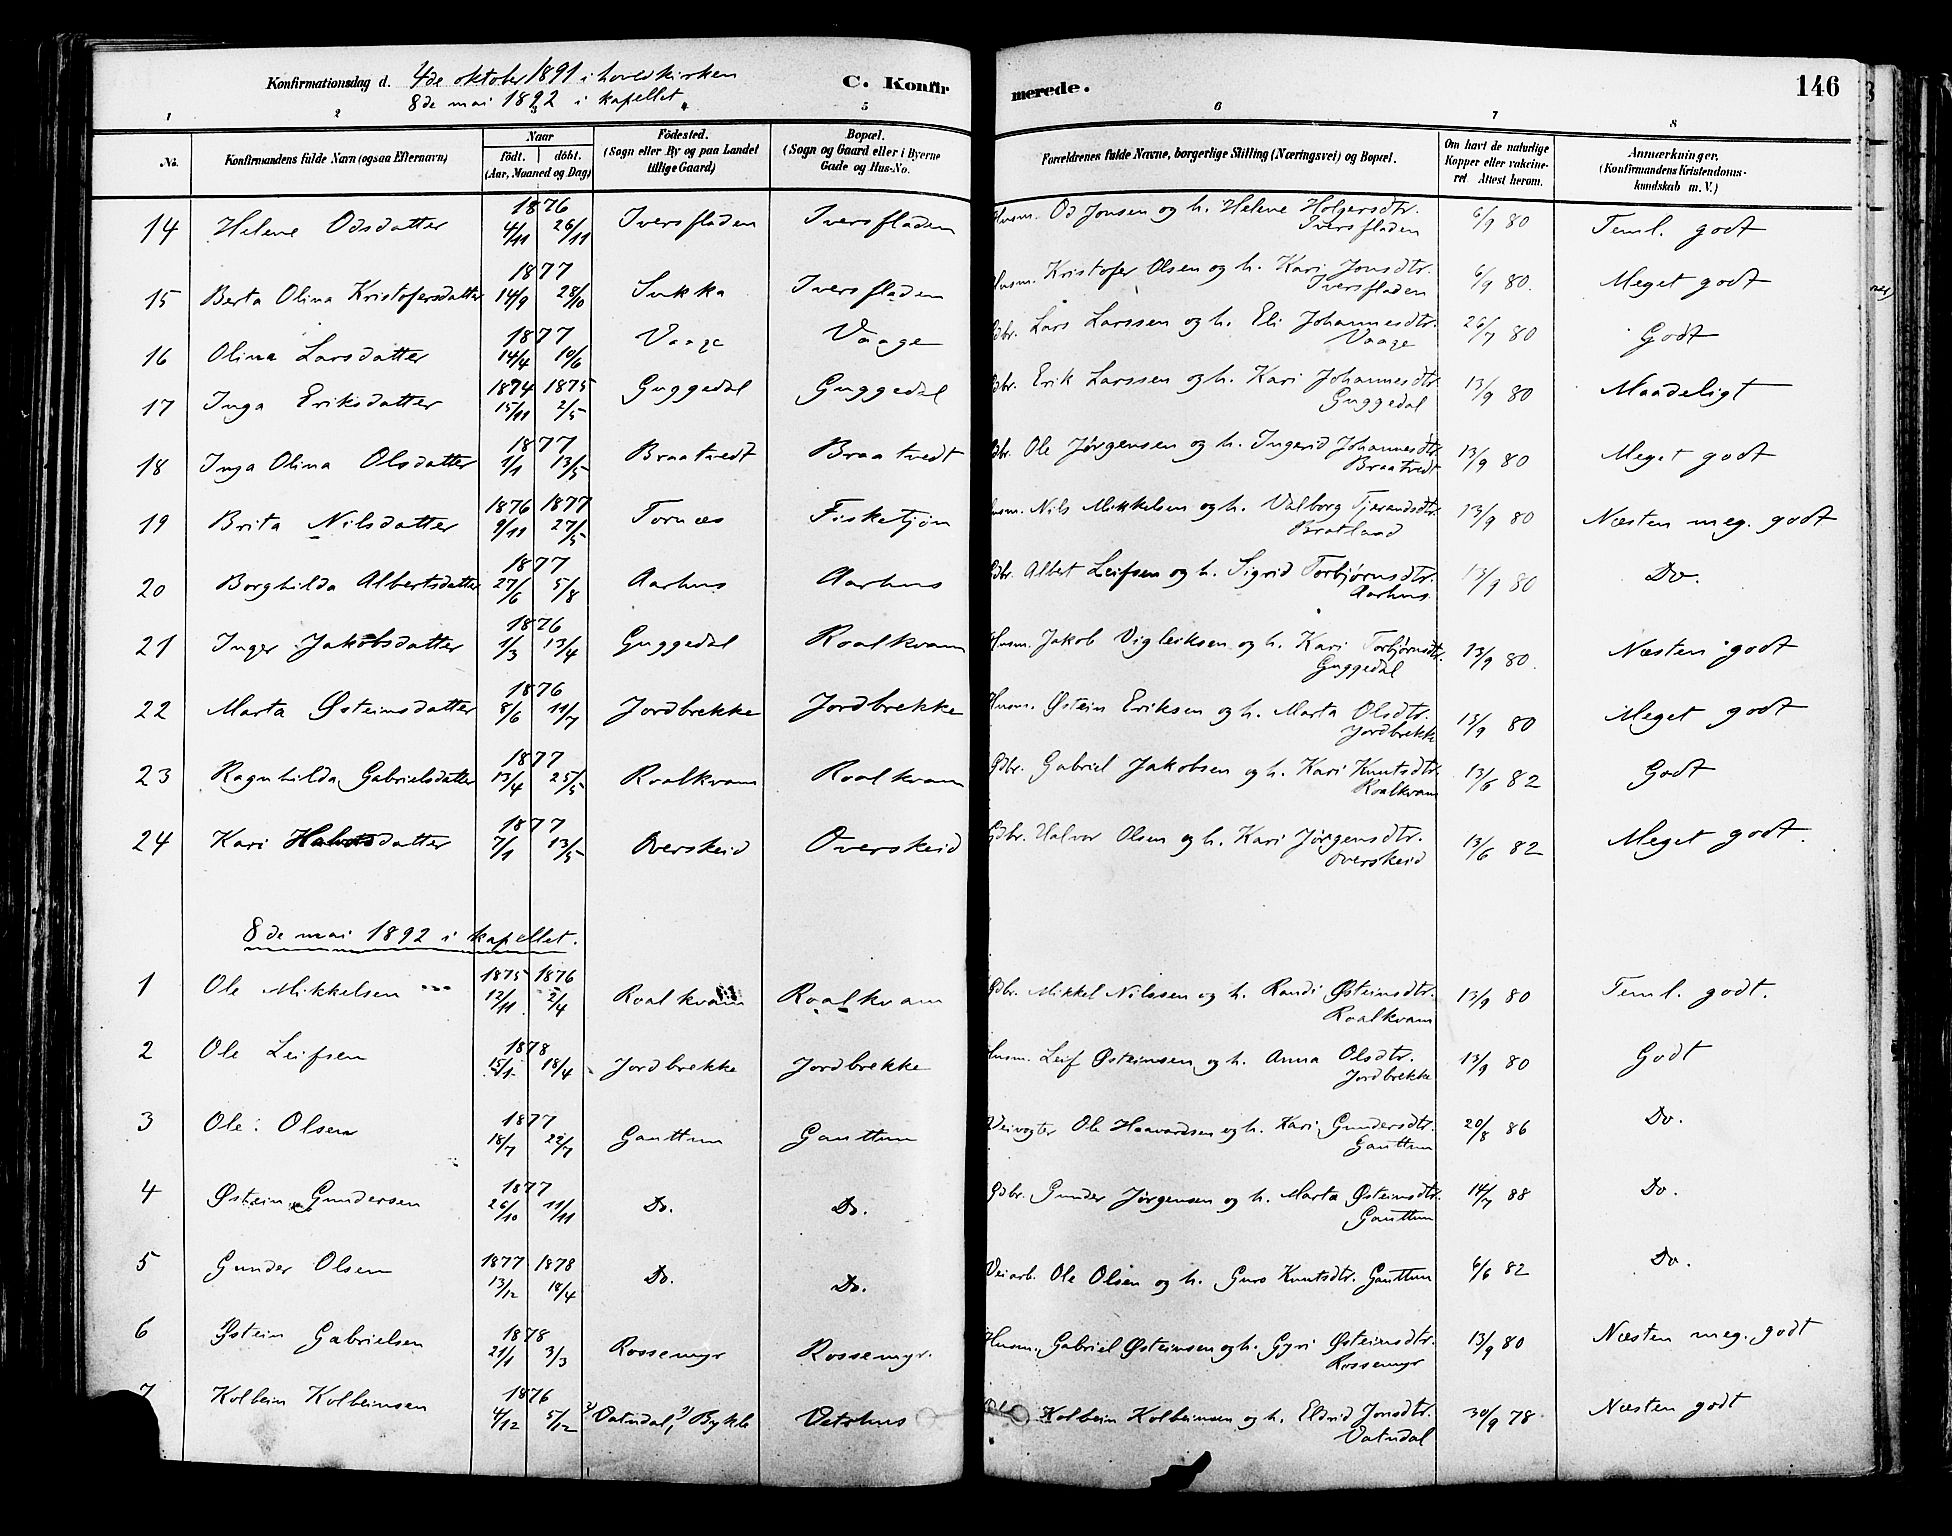 Konfirmationsdag d. 4de oktober 1891 i hovedkirken
8de mai 1892 i kapellet.
C. Konfirmerede.
146
1 2 3 5 6 7 8
No. Konfirmandens fulde Navn (ogsaa Efternavn) Naar födt. döbt. (Aar, Maaned og Dag) Födested. (Sogn eller By og paa Landet tillige Gaard) Bopæl. (Sogn og Gaard eller i Byerne Gade og Hus-No. Forældrenes fulde Navne, borgerlige Stilling (Næringsvei) og Bopæl. Om havt de naturlige Kopper eller vakcineret Attest herom. Anmærkninger. (Konfirmandens Kristendomskundskab m. V.)
14 Helene Odsdatter 1876 4/11 26/11 Iversfladen Iversfladen Husm. Od Jonsen og h. Helene Holgersdtr. Iversfladen 6/9 80 Teml. godt
15 Berta Olina Kristofersdatter 1877 14/9 28/10 Sukka Iversfladen Husm. Kristofer Olsen og h. Kari Jonsdtr. Iversfladen 6/9 80. Meget godt
16 Olina Larsdatter 1877 14/4 10/6 Vaage Vaage Gdbr. Lars Larssen og h. Eli Johannesdtr. Vaage 26/7 80 Godt
17 Inga Eriksdatter 1874 15/11 1875 2/5 Guggedal Guggedal Gdbr. Erik Larssen og h. Kari Johannesdtr. Guggedal 13/9 80 Maadeligt
18 Inga Olina Olsdatter 1877 1/1 13/5 Braatvedt Braatvedt Gdbr. Ole Jørgensen og h. Ingerid Johannesdtr. Braatvedt 13/9 80 Meget godt
19 Brita Nilsdatter 1876 9/11 1877 27/5 Tornæs Fisketjøn Husm. Nils Mikkelsen og h. Valborg Tjerandsdtr. Bratland 13/9 80 Næsten meg. godt
20 Borghilda Albertsdatter 1877 27/6 5/8 Aarhus Aarhus Gdbr. Albert Leifsen og h. Sigrid Torbjørnsdtr. Aarhus 13/9 80 Do.
21 Inger Jakobsdatter 1876 1/3 13/4 Guggedal Roalkvam Husm. Jakob Vigleiksen og h. Kari Torbjørnsdtr. Guggedal 13/9 80. Næsten godt
22 Marta Østeinsdatter 1876 8/6 11/7 Jordbrekke Jordbrekke Husm. Østein Eriksen og h. Marta Olsdtr. Jordbrekke 13/9 80 Meget godt
23 Ragnhilda Gabrielsdatter 1877 13/4 25/5 Roalkvam Roalkvam Gdbr. Gabriel Jakobsen og h. Kari Knutsdtr. Roalkvam 13/6 82 Godt
24 Kari Halvorsdatter 1877 7/1 13/5 Overskeid Overskeid Gdbr. Halvor Olsen og h. Kari Jørgensdtr. Overskeid 13/6 82 Meget godt.
8de mai 1892 i kapellet.
1 Ole Mikkelsen 1875 12/11 1876 2/4 Roalkvam Roalkvam Gdbr. Mikkel Nilssen og h. Randi Østeinsdtr. Roalkvam 13/9 80 Teml. godt.
2 Ole Leifsen 1878 15/1 18/4 Jordbrekke Jordbrekke Husm. Leif Østeinsen og h. Anna Olsdtr. Jordbrekke 13/9 80 Godt
3 Ole Olsen 1877 18/7 22/7 Gauttun Gauttun Veivogter Ole Haavardsen og h. Kari Gundersdtr. Gauttun 20/8 86 Do.
4 Østein Gundersen 1877 26/10 11/11 Do. Do. Gdbr. Gunder Jørgensen og h. Marta Østeinsdtr. Gauttun 14/7 88 Do.
5 Gunder Olsen 1877 13/12 1878 18/4 Do. Do. Veiarb. Ole Olsen og h. Guro Knutsdtr. Gauttun 6/6 82 Do.
6 Østein Gabrielsen 1878 21/1 3/3 Rossemyr Rossemyr. Husm. Gabriel Østeinsen og h. Gyri Østeinsdtr. Rossemyr 13/9 80 Næsten meg. godt
7 Kolbein Kolbeinsen 1876 4/12 5/12 Vatndal, Bykle Vetrhus Kolbein Kolbeinsen og h. Eldrid Jonsdtr. Vatndal 30/9 78 Næsten godt